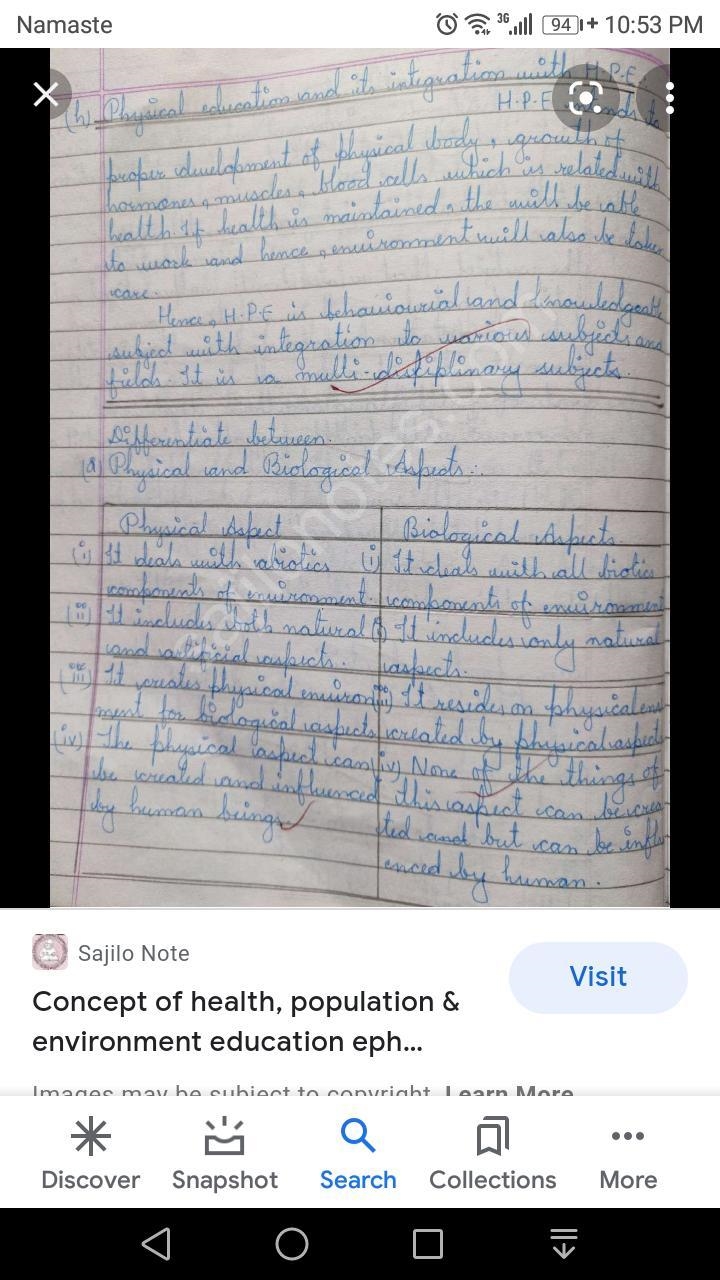 Namaste
3G
94
10:53 PM
(h) Physical education and its integration with H.P.E.
H.P.E
proper development of physical body, growth of
hormones, muscles, blood cells which is related with
health. If health is maintained, the will be able
to work and hence, environment will also be taken
care.
Hence, H.P.E is behaviourial and knowledgeable
subject with integration to various subjects and
fields. It is a multi-disciplinary subjects.
Differentiate between.
(a) Physical and Biological Aspects:.
Physical Aspect
(i) It deals with abiotics
components of environment.
(ii) It includes both natural
and artificial aspects.
(iii) It creates physical environ
ment for biological aspects
(iv) The physical aspect can
be created and influenced
by human beings
Biological Aspects.
(i) It deals with all biotics
components of environment
It includes only natural
aspects.
(iii) It resides on physical en
created by physical aspect
(iv) None of the things of
this aspect can be crea
ted and but can be influ
enced by human.
sajilonotes.com
Sajilo Note
Visit
Concept of health, population &
environment education eph...
Images may be subject to copyright. Learn More
Discover
Snapshot
Search
Collections
More